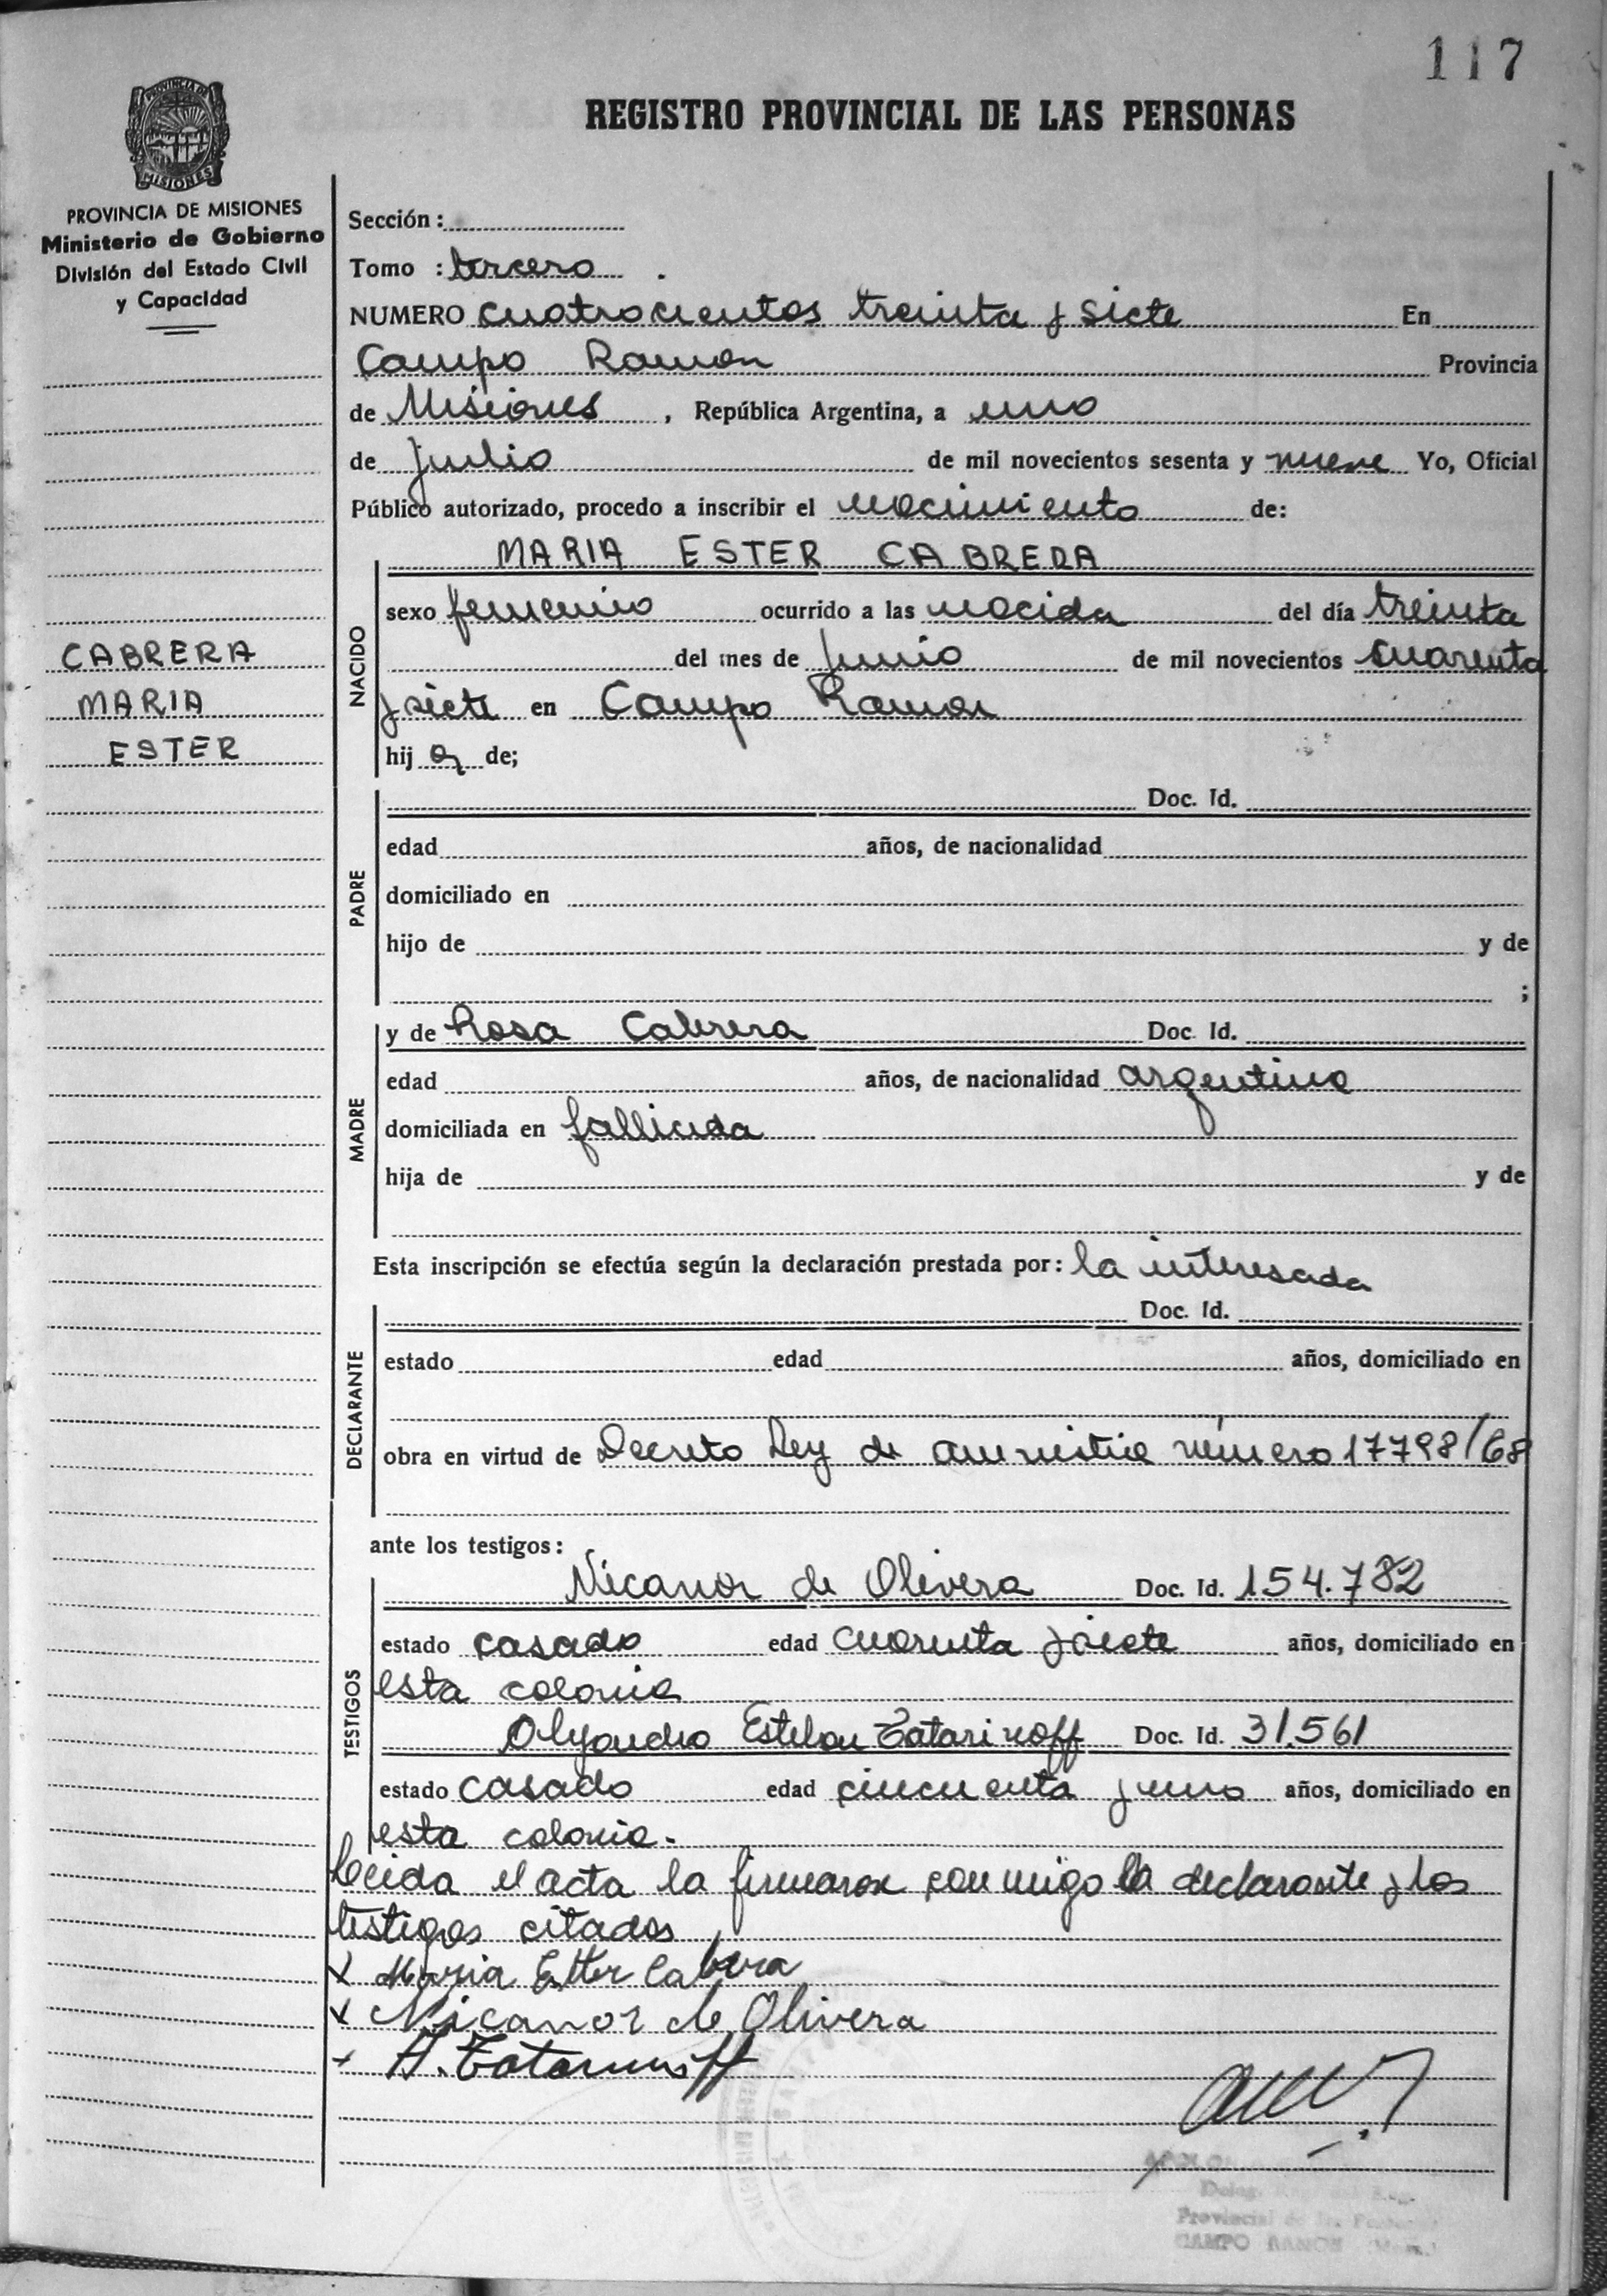 117
PROVINCIA DE
MISIONES
REGISTRO PROVINCIAL DE LAS PERSONAS
PROVINCIA DE MISIONES
Ministerio de Gobierno
División del Estado Civil
y Capacidad
Sección:
Tomo : tercero .
NUMERO cuatrocientos treinta y siete En
Campo Ramon Provincia
de Misiones , República Argentina, a uno
de julio de mil novecientos sesenta y nueve Yo, Oficial
Público autorizado, procedo a inscribir el nacimiento de:
CABRERA
MARIA
ESTER
NACIDO
MARIA ESTER CABRERA
sexo femenino ocurrido a las nacida del día treinta
del mes de Junio de mil novecientos cuarenta
y siete en Campo Ramon
hij a de;
PADRE
Doc. Id.
edad años, de nacionalidad
domiciliado en
hijo de y de
;
MADRE
y de Rosa Cabrera Doc. Id.
edad años, de nacionalidad argentina
domiciliada en fallicida
hija de y de
Esta inscripción se efectúa según la declaración prestada por: la interesada
DECLARANTE
Doc. Id.
estado edad años, domiciliado en
obra en virtud de Decreto Ley de amnistia número 17798/68
ante los testigos:
TESTIGOS
Nicanor de Olivera Doc. Id. 154.782
estado casado edad cuarenta y siete años, domiciliado en
esta colonia
Olejandro Esteban Tatarinoff Doc. Id. 31.561
estado casado edad cincuenta y uno años, domiciliado en
esta colonia.
Leida el acta la firmaron conmigo la declarante y los
testigos citados
x Maria Ester Cabrera
x Nicanor de Olivera
x A. Tatarinoff
Provincial de
CAMPO RAMON